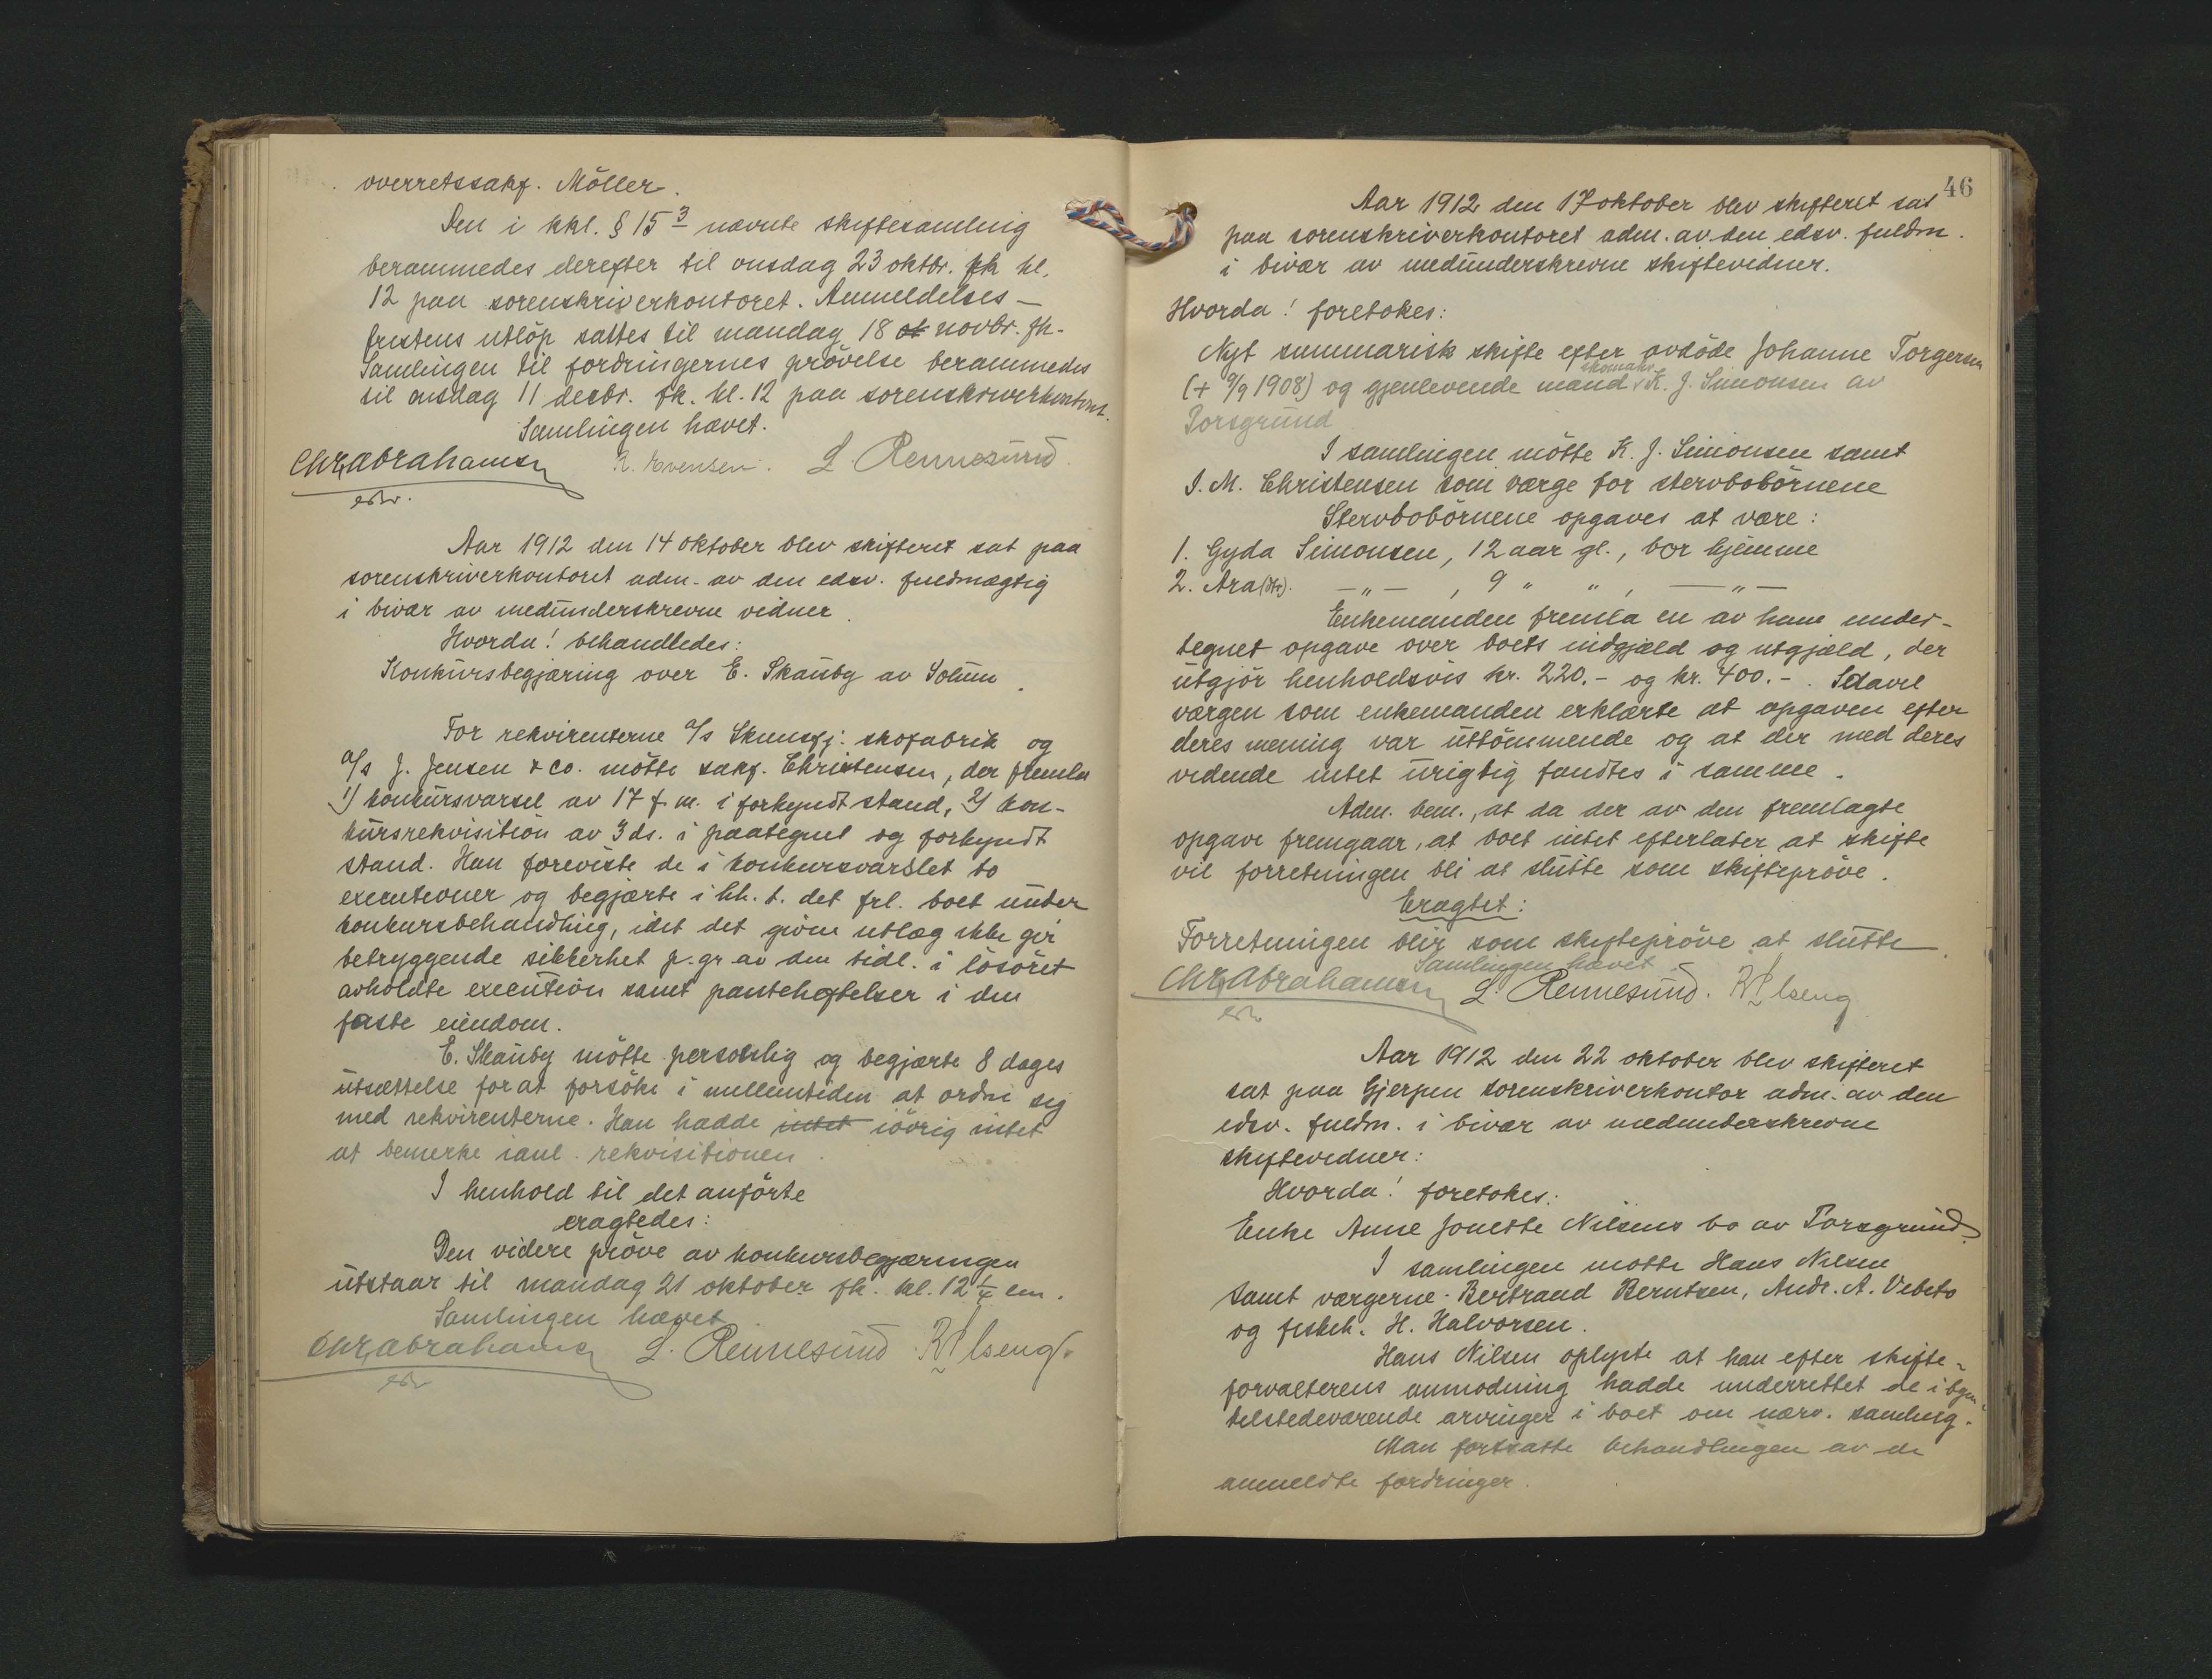 overretssakf. Möller.
Den i kkl. § 15 3 nævnte skiftesamling
berammedes derefter til onsdag 23 oktbr. fk kl.
12 paa sorenskriverkontoret. Anmeldelses-
fristens utlöp sattes til mandag 18 ok novbr. fk.
Samlingen til fordringernes prövelse berammedes
til onsdag 11 decbr. fk. kl. 12 paa sorenskriverkontoret.
Samlingen hævet.
Chr Abrahamsen R. Evensen. L. Rennesund
edsv.
Aar 1912 den 14 oktober blev skifteret sat paa
sorenskriverkontoret adm. av den edsv. fuldmægtig
i bivær av medunderskrevne vidner.
Hvorda! behandledes:
Konkursbegjæring over E. Skauby av Solum.
For rekvirenterne A/s Skiensfj. skofabrik og
A/s J. Jensen & co. mötte sakf. Christensen, der fremla
1) konkursvarsel av 17 f. m. i forkyndt stand, 2) kon-
kursrekvisition av 3 ds. i paategnet og forkyndt
stand. Han foreviste de i konkursvarslet to
executioner og begjærte i hh. t. det frl. boet under
konkursbehandling, idet det givne utlæg ikke gir
betryggende sikkerhet p. gr av den tidl. i lösöret
avholdte execution samt panteheftelser i den
faste eiendom.
E. Skauby mötte personlig og begjærte 8 dages
utsættelse for at forsöke i mellemtiden at ordne sig
med rekvirenterne. Han hadde intet iövrig intet
at bemerke ianl. rekvisitionen.
I henhold til det anförte
eragtedes:
Den videre pröve av konkursbegjæringen
utstaar til mandag 21 oktober fk. kl. 12 1/4 em.
Samlingen hævet
Chr Abrahamsen L. Rennesund R Ulseng.
edsv
46
Aar 1912 den 17 oktober blev skifteret sat
paa sorenskriverkontoret adm. av den edsv. fuldm.
i bivær av medunderskrevne skiftevidner.
Hvorda! foretokes:
Nyt summarisk skifte efter avdöde Johanne Torgersen
skomaker
(+ 9/9 1908) og gjenlevende mand K. J. Simonsen av
Porsgrund
I samlingen mötte K. J. Simonsen samt
J. M. Christensen som værge for stervbobörnene
Stervbobörnene opgaves at være:
1. Gyda Simonsen, 12 aar gl., bor hjemme
2. Ara (dtr). — " — , 9 " " , — " —
Enkemanden fremla en av ham under-
tegnet opgave over boets indgjæld og utgjæld, der
utgjör henholdsvis kr. 220.- og kr. 400.-. Saavel
værgen som enkemanden erklærte at opgaven efter
deres mening var uttömmende og at der med deres
vidende intet urigtig fandtes i samme.
Adm. bem., at da der av den fremlagte
opgave fremgaar, at boet intet efterlater at skifte
vil forretningen bli at slutte som skiftepröve.
Eragtet:
Forretningen blir som skiftepröve at slutte
Samlingen hævet.
Chr Abrahamsen L. Rennesund. R Ulseng
edsv
Aar 1912 den 22 oktober blev skifteret
sat paa Gjerpen sorenskriverkontor adm. av den
edsv. fuldm. i bivær av medunderskrevne
skiftevidner:
Hvorda! foretokes:
Enke Anne Jonette Nilsens bo av Porsgrund.
I samlingen mötte Hans Nilsen
samt værgerne Bertrand Berntsen, Andr. A. Vebeto
og fiskeh. H. Halvorsen.
Hans Nilsen oplyste at han efter skifte-
forvalterens anmodning hadde underrettet de i bgm
tilstedeværende arvinger i boet om nærv. samling.
Man fortsatte behandlingen av de
anmeldte fordringer.